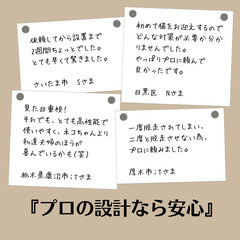 依頼してから設置まで
2週間ちょっとでした。
とても早くて驚きました。
さいたま市 Sさま
初めて猫をお迎えするので
どんな対策が必要か分か
りませんでした。
やっぱりプロに頼んで
良かったです。
目黒区 Nさま
見た目重視!
それでも、とても高性能で
使いやすく、ネコちゃんより
私達夫婦のほうが
喜んでいるかも(笑)
栃木県鹿沼市:Tさま
一度脱走されてしまい、
二度と脱走させない為、
プロに頼みました。
厚木市:Iさま
『プロの設計なら安心』